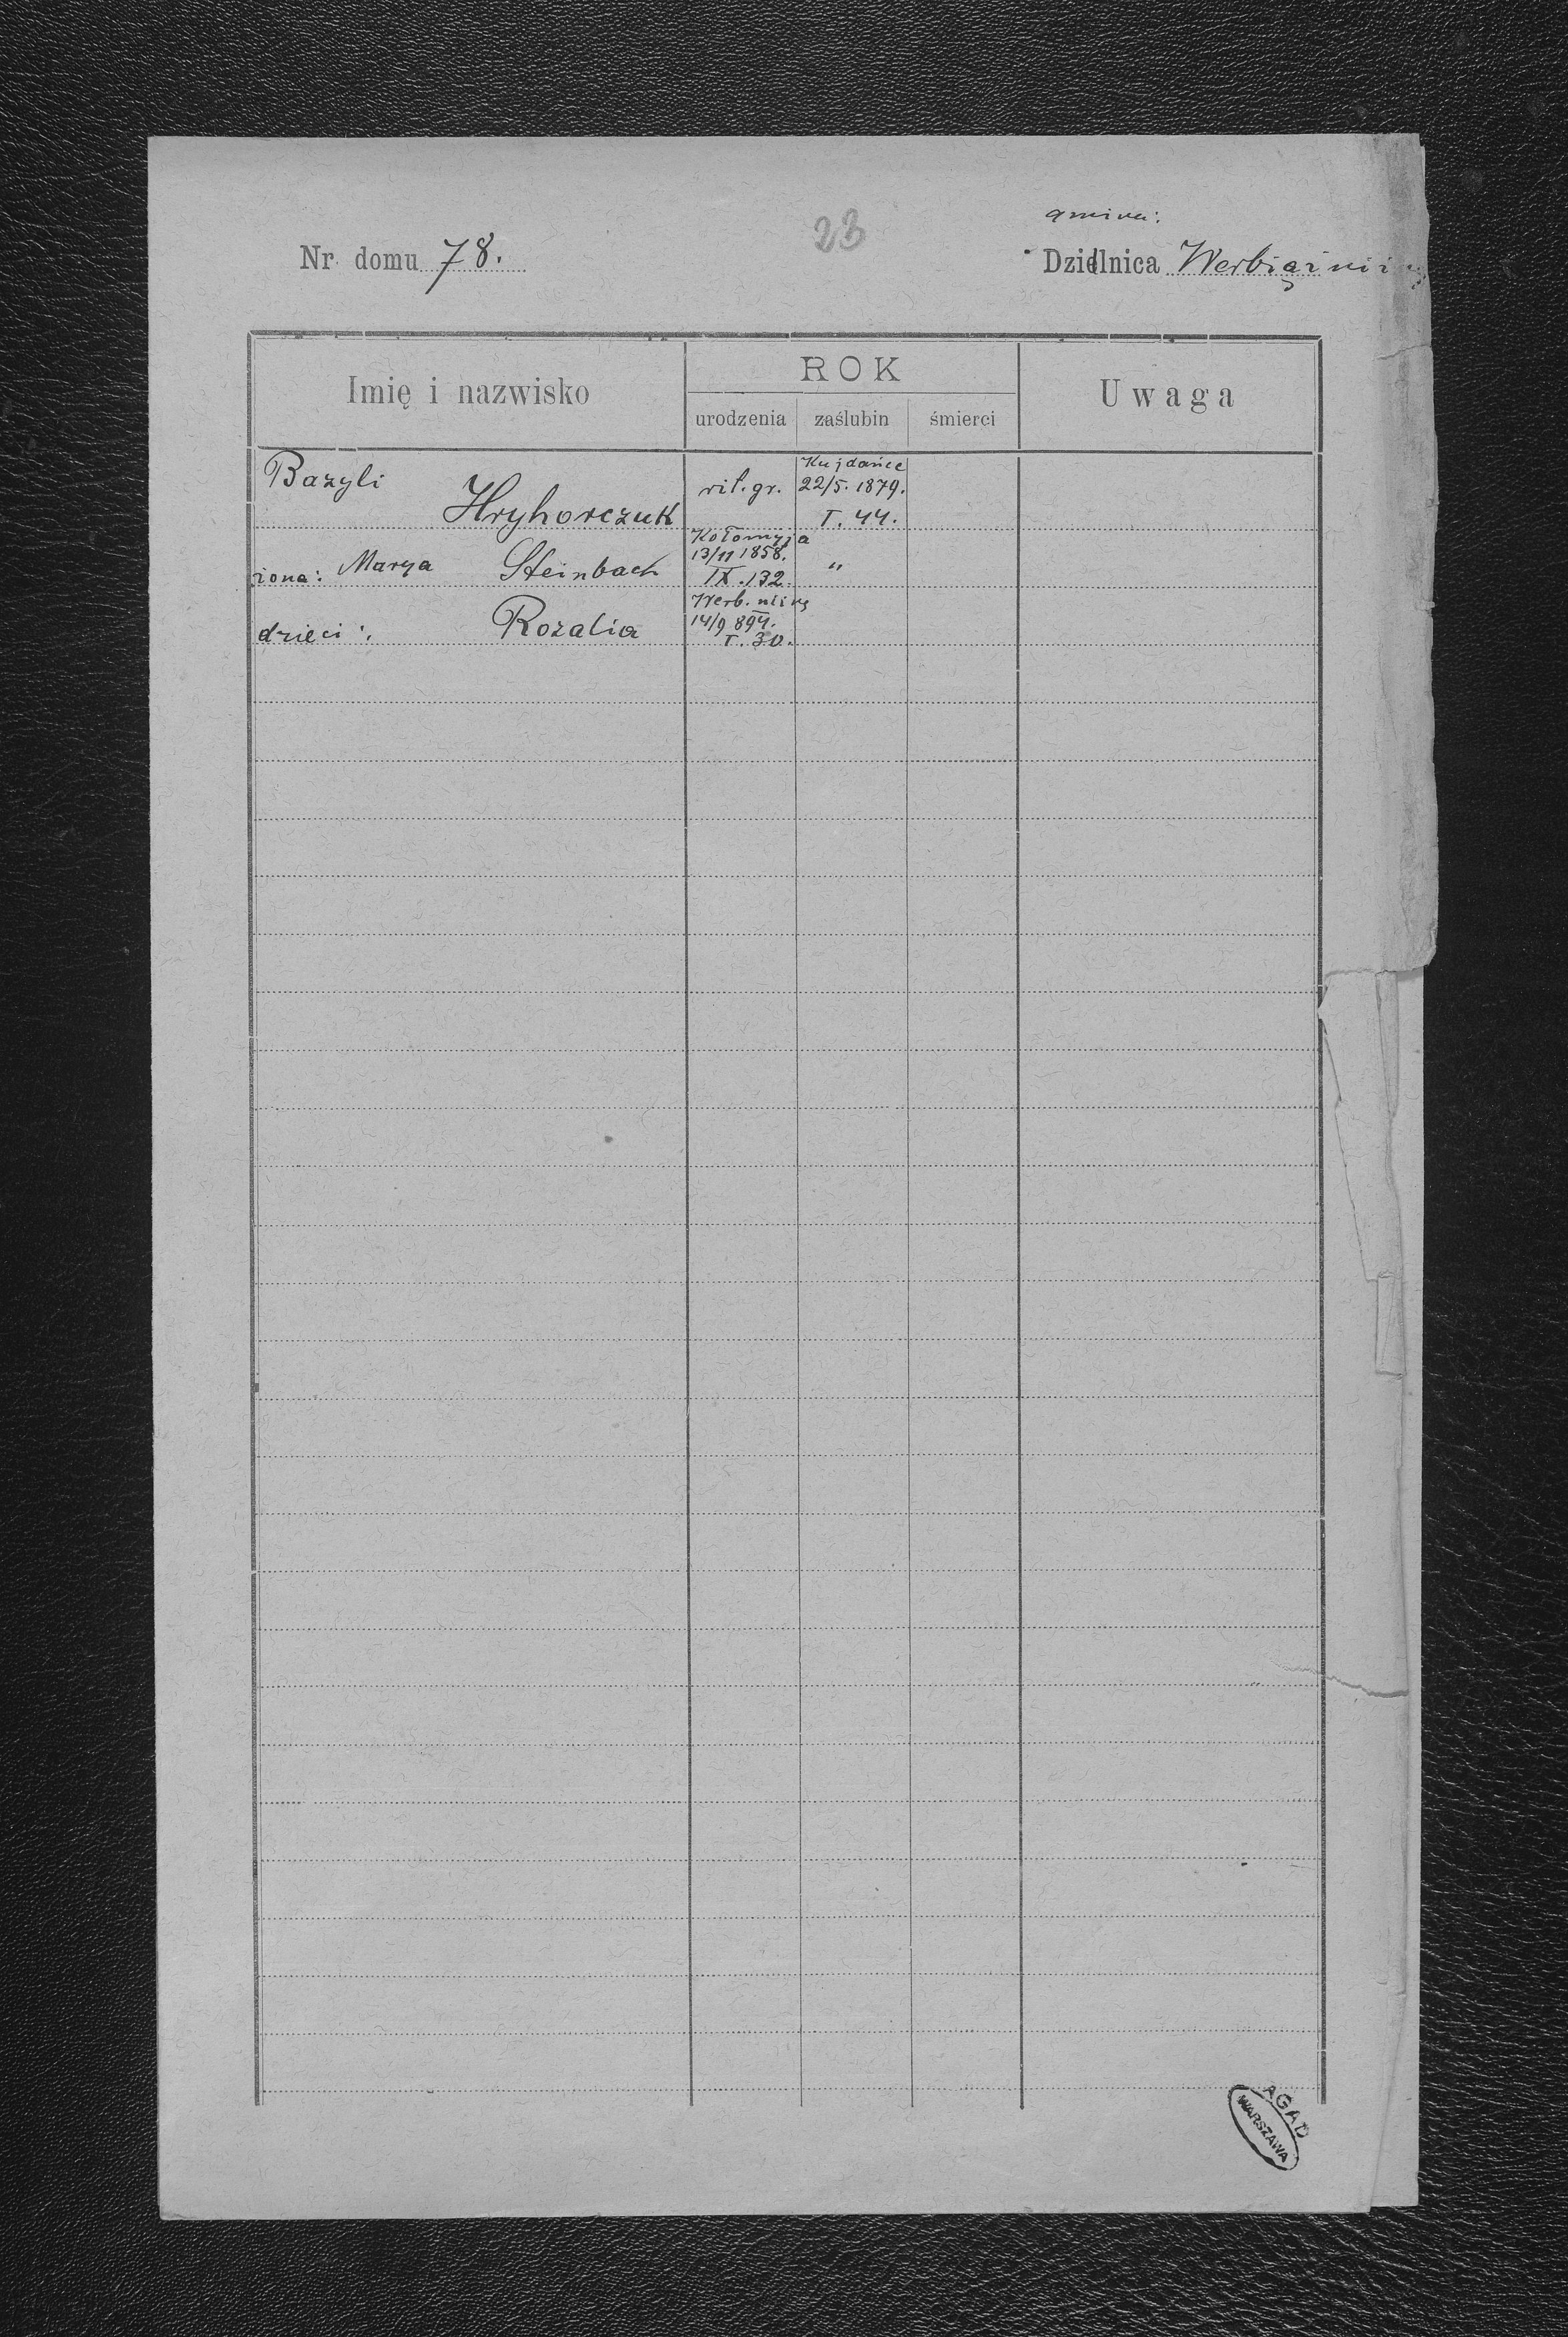 gmina:
23
Nr domu 78.
Dzielnica
Imię i nazwisko
ROK
urodzenia zaślubin śmierci
Uwaga
Bazyli Hryhorczuk
rit. gr.
Kujdańce
22/5. 1879.
I. 44.
żona: Marya Steinbach
Kołomyja
13/11 1858.
IX. 132.
"
dzieci: Rozalia
Werb. niżny
14/9 894.
I. 30.
AGAD
WARSZAWA